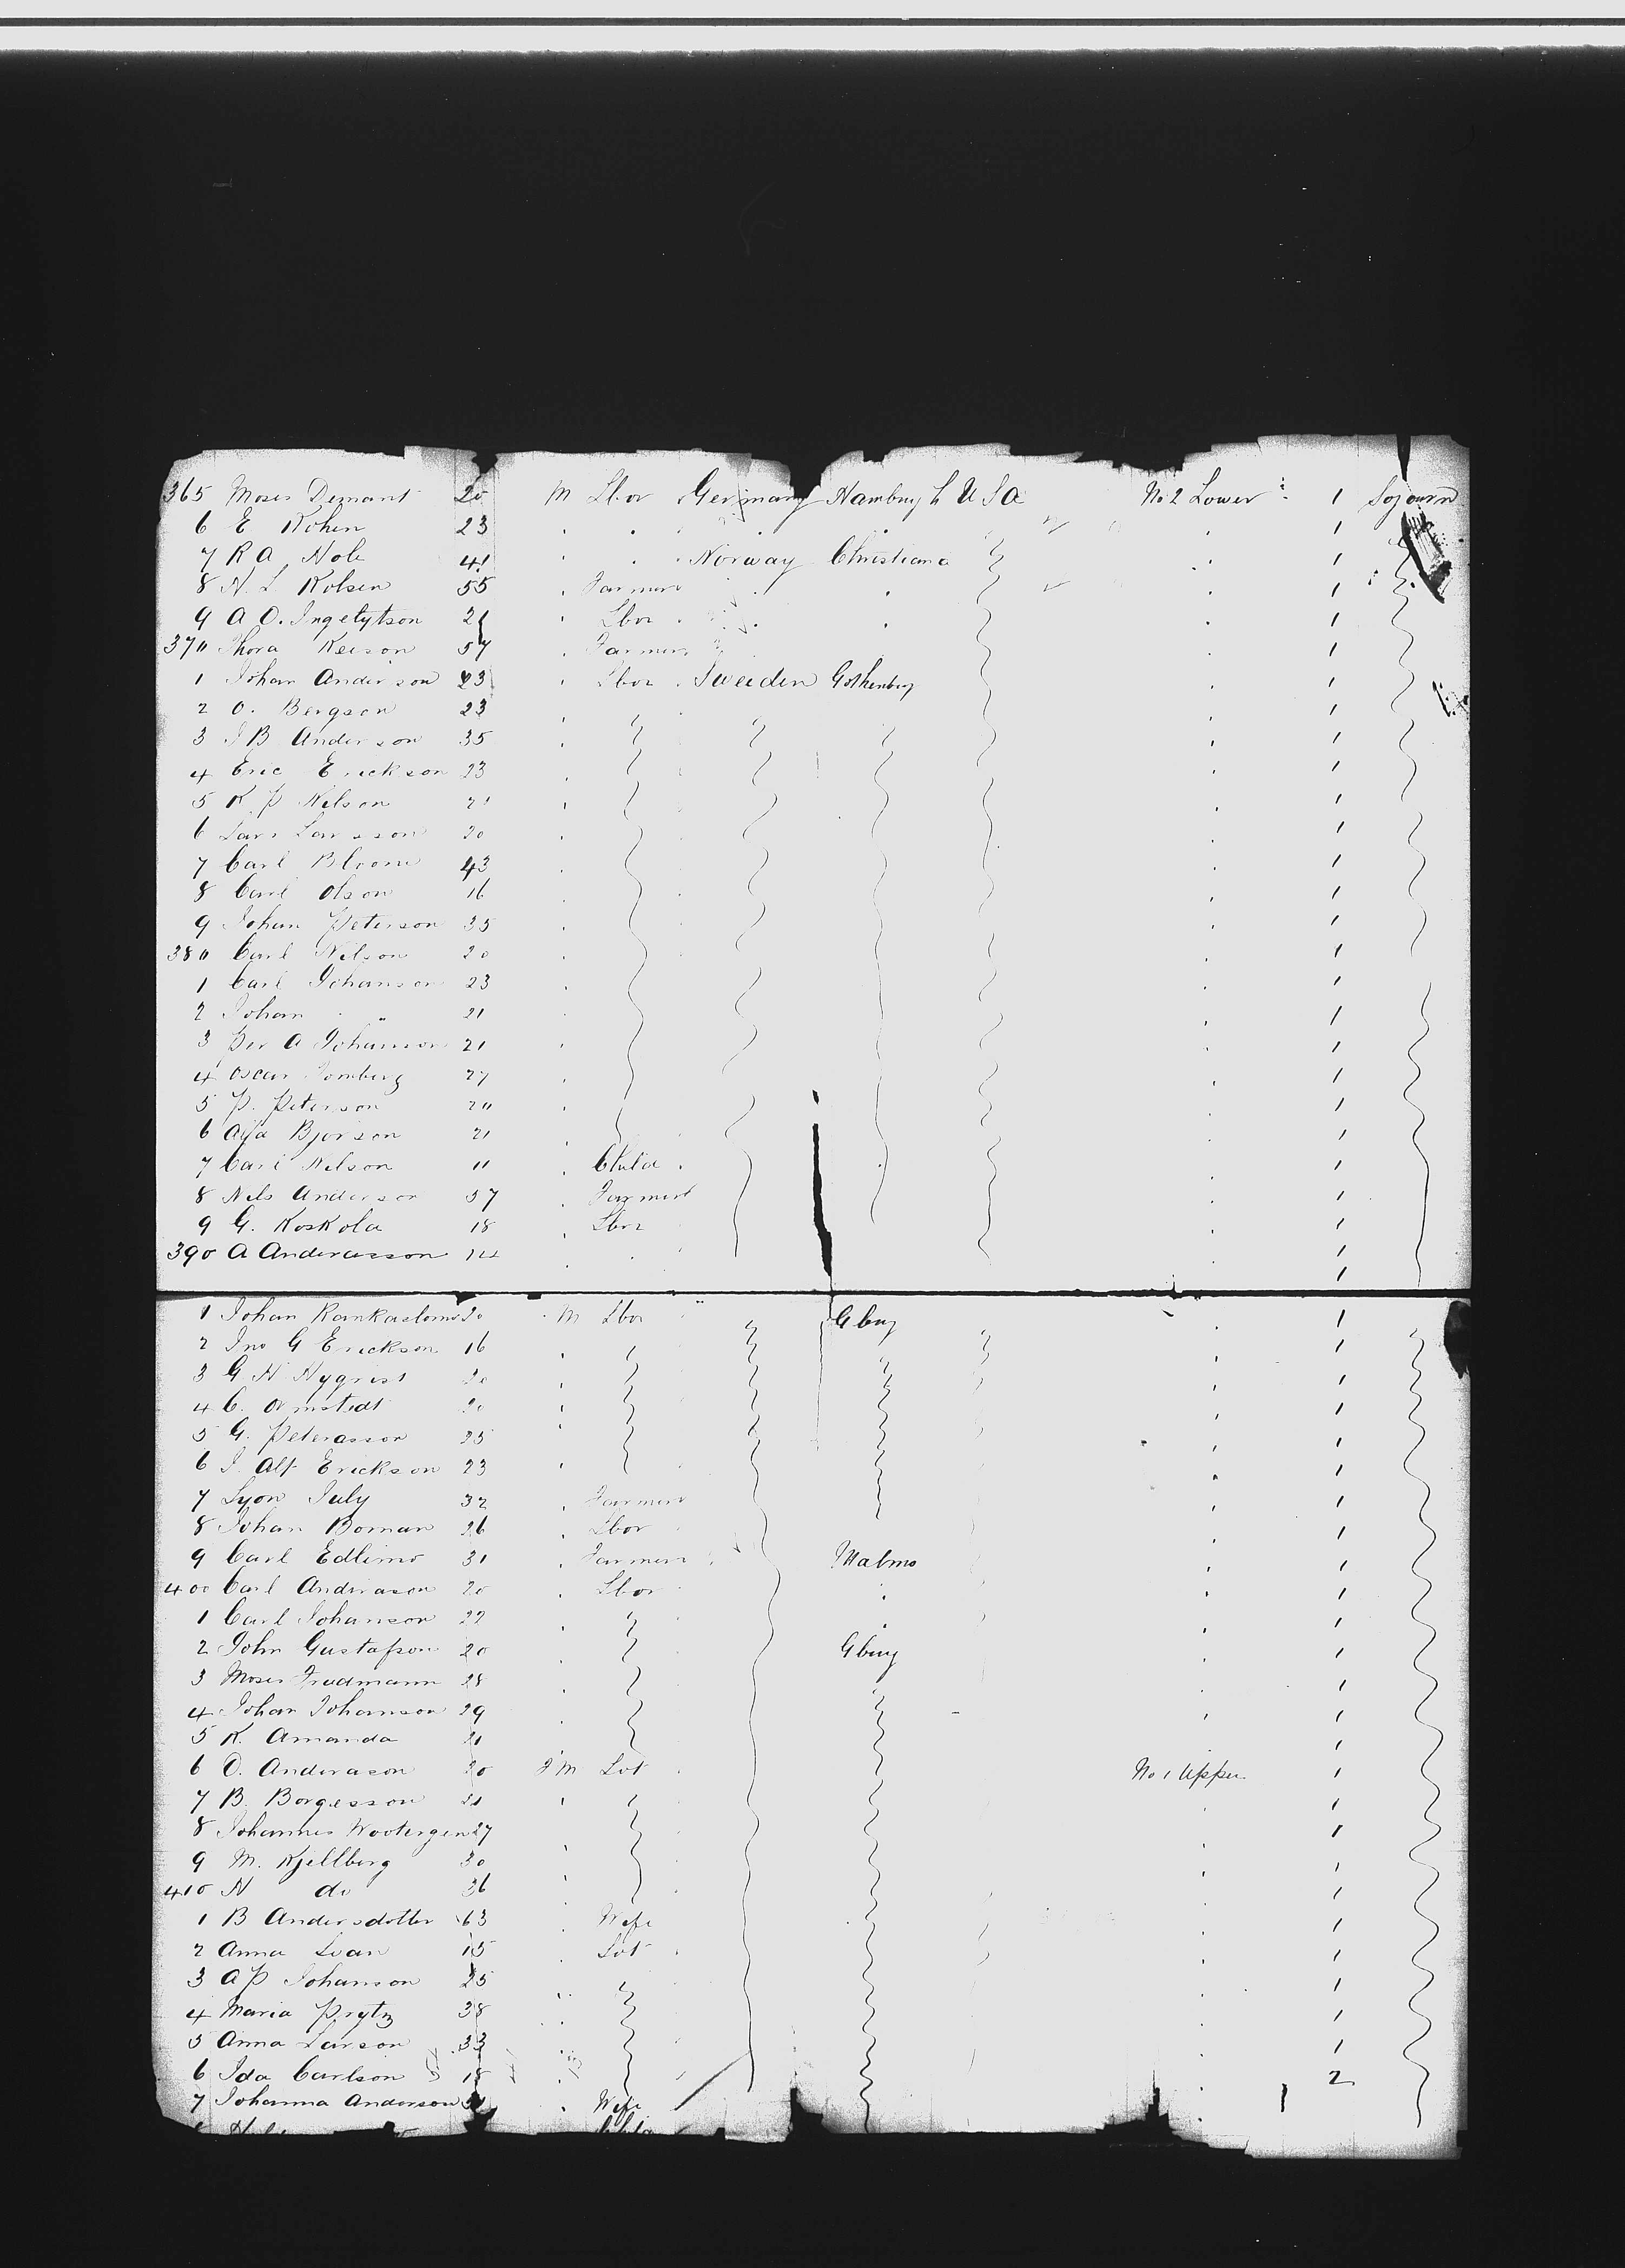 365 Moses Demant 20 M Lbor Germany Hamburgh U S A No 2 Lower 1 Sojourn
6 E Kohen 23 1
7 R A Hole 41 Norway Christiana 1
8 N. L. Kolsen 55 Farmer 1
9 A O. Ingelytson 21 Lbor 1
370 Thora Keison 57 Farmer 1
1 Johan Anderson 23 Lbor Sweeden Gothenburg 1
2 O. Bergson 23 1
3 J B Anderson 35 1
4 Eric Erickson 23 1
5 K. P Nelson 21 1
6 Lars Larsson 20 1
7 Carl Bloom 43 1
8 Carl Olson 16 1
9 Johan Peterson 35 1
380 Carl Nelson 20 1
1 Carl Johanson 23 1
2 Johan " 21 1
3 Per A Johanson 21 1
4 Oscar 27 1
5 P. Peterson 20 1
6 Bjorson 21 1
7 Carl Nelson 11 Child 1
8 Nels Anderson 57 Farmer 1
9 G. Koskola 18 Lbor 1
390 A Anderasson 1
1 Johan 20 M Lbor " Gburg 1
2 Jno G Erickson 16 1
3 G H Nyqvist 20 1
4 C. Ormstedt 20 1
5 G. Peterasson 25 1
6 J. Alf Erickson 23 1
7 Lyon July 32 Farmer 1
8 Johan Boman 26 Lbor 1
9 Carl 31 Farmer Malmo 1
400 Carl Anderason 20 Lbor 1
1 Carl Johanson 22 1
2 John Gustafson 20 Gburg 1
3 Moses Fredmann 28 1
4 Johan Johanson 29 1
5 K. Amanda 21 1
6 O. Anderason 20 M No 1 Upper 1
7 B. Borgesson 21 1
8 Johannes 27 1
9 M. Kjellberg 30 1
410 N do 36 1
1 B Andersdotter 63 Wife 1
2 Anna 15 1
3 A P Johanson 25 1
4 Maria Prytz 38 1
5 Anna Larson 33 1
6 Ida Carlson 18 2
7 Johanna Anderson Wife 1